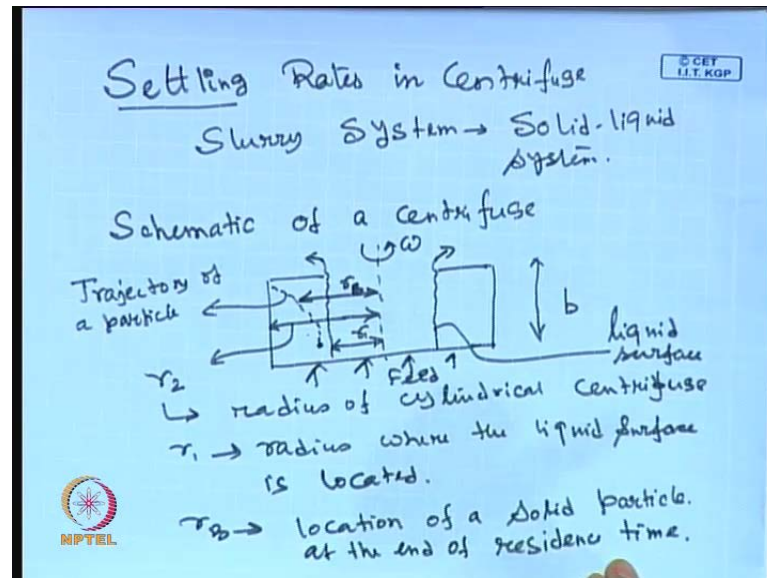 Settling Rates in Centrifuge
© CET
I.I.T. KGP
Slurry System → Solid-liquid
system.
Schematic of a centrifuge
ω
Trajectory of
a particle
r_B
r_1
b
liquid
surface
Feed
r_2
↳ radius of cylindrical centrifuse
r_1 → radius where the liquid surface
is located.
r_B → location of a solid particle.
at the end of residence time.
NPTEL